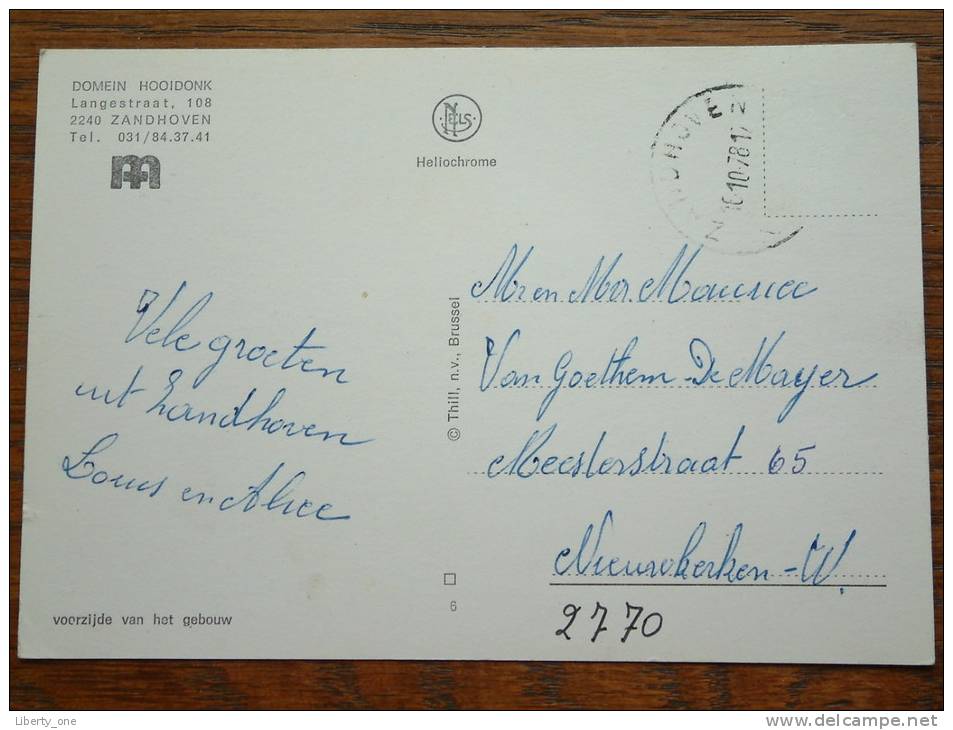 DOMEIN HOOIDONK
Langestraat, 108
2240 ZANDHOVEN
Tel. 031/84.37.41
NELS
Heliochrome
ZANDHOVEN
10-78 17
Vele groeten
uit Zandhoven
Louis en Alice
© Thill, n.v., Brussel
Mr en Mvr. Maurice
Van Goethem-De Mayer
Meesterstraat 65
Nieuwkerken-W.
2770
6
voorzijde van het gebouw
Liberty_one
www.delcampe.net